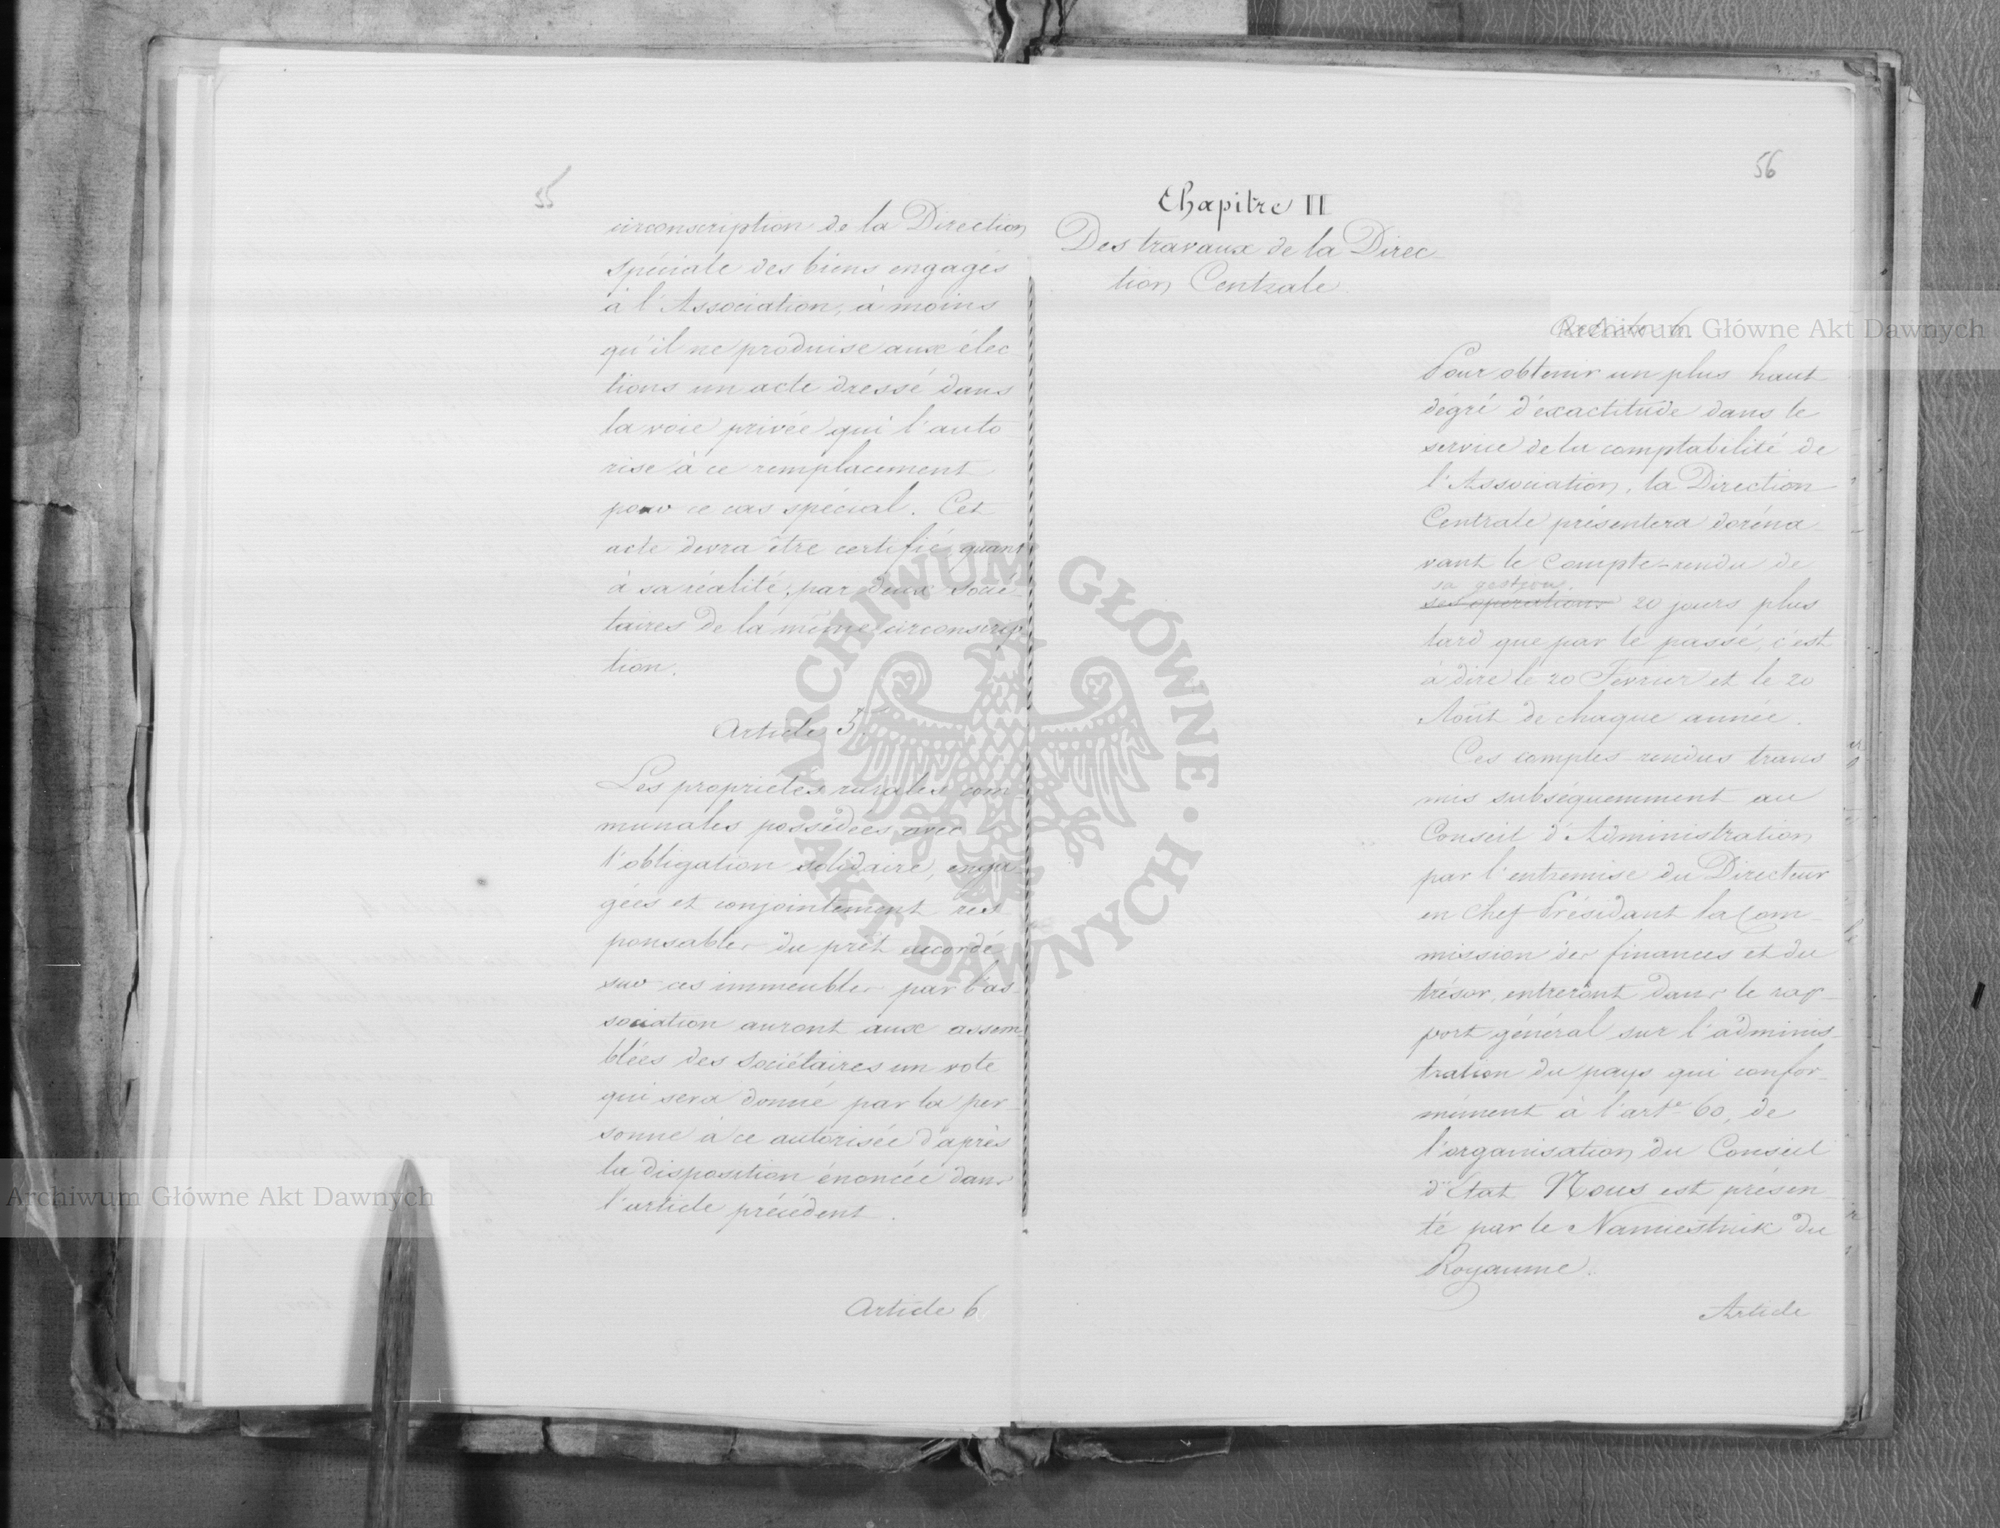 55
circonscription de la Direction
spéciale des biens engagés
à l'Association, à moins
qu'il ne produise aux élec
tions un acte dressé dans
la voie privée qui l'auto
rise à ce remplacement
pour ce cas spécial. Cet
acte devra être certifié, quant
à sa réalité, par deux socié-
taires de la même circonscrip
tion.
Article 5.
Les propriétés rurales com-
munales possédées avec
l'obligation solidaire, enga-
gées et conjointement res
ponsables du prêt accordé
sur ces immeubles par l'as-
sociation auront aux assem
blées des sociétaires un vote
qui sera donné par la per-
sonne à ce autorisée d'après
la disposition énoncée dans
l'article précédent.
Article 6
56
Chapitre II
Des travaux de la Direc-
tion Centrale.
Article 6.
Pour obtenir un plus haut
dégré d'éxactitude dans le
service de la comptabilité de
l'Association, la Direction
Centrale présentera doréna-
vant le Compte-rendu de
sa gestion
ses opérations 20 jours plus
tard que par le passé, c'est
à dire le 20 Fevrier et le 20
Août de chaque année.
Ces comptes-rendus trans
mis subséquemment au
Conseil d'Administration
par l'entremise du Directeur
en Chef Présidant la Com-
mission des finances et du
trésor, entreront dans le rap-
port général sur l'adminis-
tration du pays qui confor-
mément à l'arte 60, de
l'organisation du Conseil
d'Etat Nous est présen-
té par le Namiestnik du
Royaume.
Article
Archiwum Główne Akt Dawnych
Archiwum Główne Akt Dawnych
ARCHIWUM GŁÓWNE · AKT DAWNYCH ·